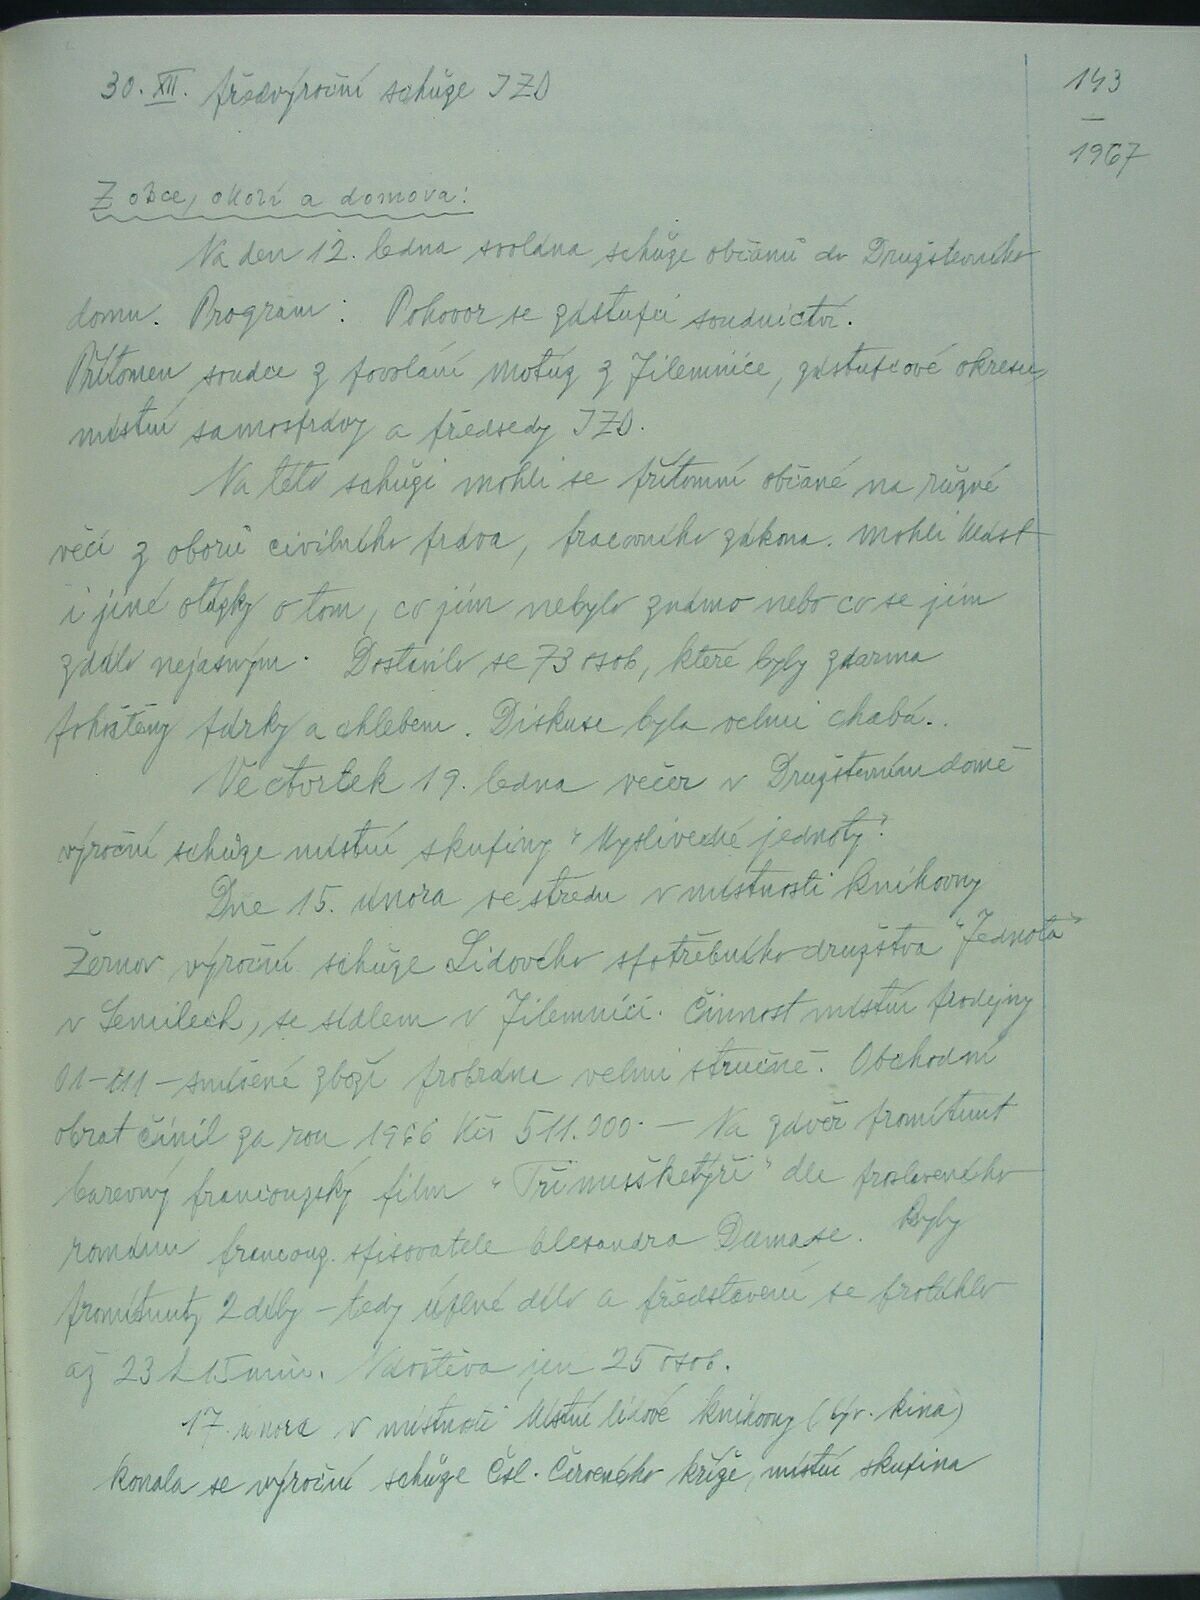 30. XII. předvýroční schůze JZD
143
—
1967
Z obce, okolí a domova:
Na den 12. ledna svolána schůze občanů do Družstevního
domu. Program: Pohovor se zástupci soudnictví.
Přítomen soudce z povolání Motúz z Jilemnice, zástupcové okresu
místní samosprávy a předsedy JZD.
Na této schůzi mohli se přítomní občané na různé
věci z oborů civilního práva, pracovního zákona. Mohli klást
i jiné otázky o tom, co jim nebylo známo nebo co se jim
zdálo nejasným. Dostavilo se 73 osob, které byly zdarma
pohoštěny párky a chlebem. Diskuse byla velmi chabá.
Ve čtvrtek 19. ledna večer v Družstevním domě
výroční schůze místní skupiny "Myslivecké jednoty".
Dne 15. února ve středu v místnosti knihovny
Žernov výroční schůze Lidového spotřebního družstva "Jednota"
v Semilech, se sídlem v Jilemnici. Činnost místní prodejny
01-111 - smíšené zboží probrána velmi stručně. Obchodní
obrat činil za rok 1966 Kčs 511.200.— Na závěr promítnut
barevný francouzský film "Tři mušketýři" dle proslaveného
románu francouz. spisovatele Alexandra Dumase. Byly
promítnuty 2 díly - tedy úplné dílo a představení se protáhlo
až 23 h 15 min. Návštěva jen 25 osob.
17. února v místnosti Místní lidové knihovny (býv. kina)
konala se výroční schůze Čsl. Červeného kříže, místní skupina